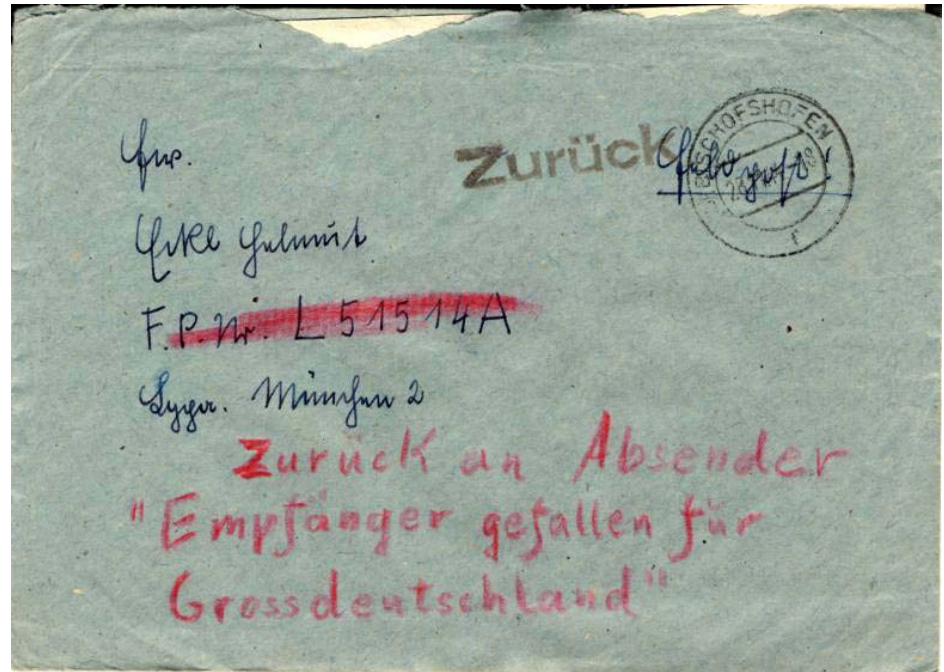 Zurück
BISCHOFSHOFEN
Feldpost!
Eckl Helmut
F.P.Nr. L 51514A
Lgpa. München 2
Zurück an Absender
"Empfänger gefallen für
Grossdeutschland"